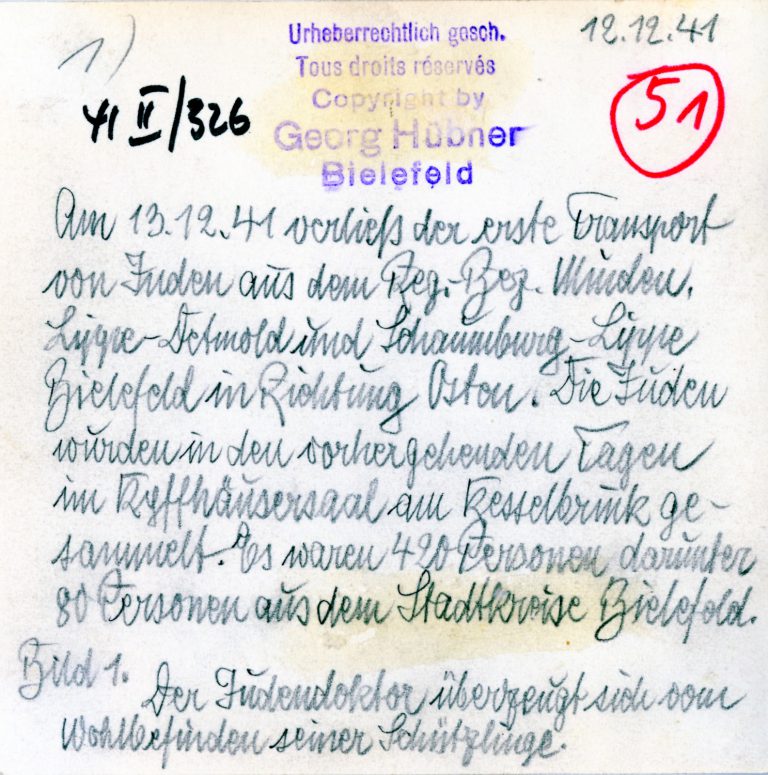 1)
Urheberrechtlich gesch.
12.12.41
Tous droits réservés
Copyright by
Georg Hübner
Bielefeld
41 II/326
51
Am 13.12.41 verließ der erste Transport
von Juden aus dem Reg.-Bez. Minden,
Lippe-Detmold und Schaumburg-Lippe
Bielefeld in Richtung Osten. Die Juden
wurden in den vorhergehenden Tagen
im Kyffhäusersaal am Kesselbrink ge-
sammelt. Es waren 420 Personen darunter
80 Personen aus dem Stadtkreise Bielefeld.
Bild 1.
Der Judendoktor überzeugt sich vom
Wohlbefinden seiner Schützlinge.